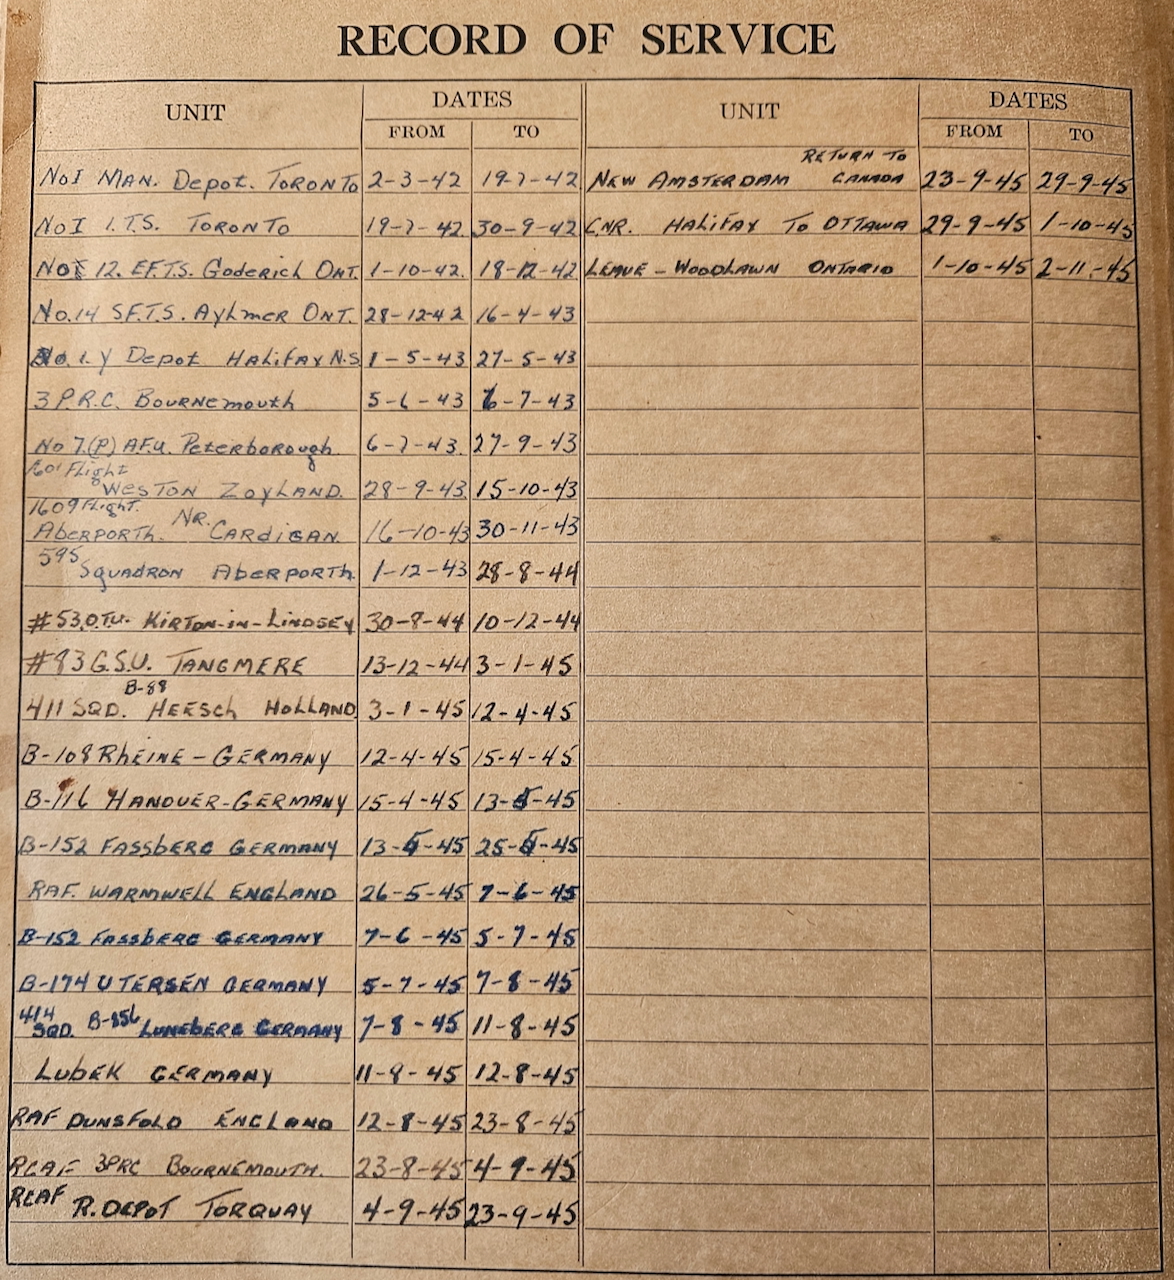 RECORD OF SERVICE
UNIT DATES FROM TO UNIT DATES FROM TO
No I MAN. Depot. TORONTO 2-3-42 19-7-42
No I I.T.S. TORONTO 19-7-42 30-9-42
No 12. E.F.T.S. Goderich ONT. 1-10-42. 18-12-42
No.14 S.F.T.S. Aylmer ONT. 28-12-42 16-4-43
No 1. Y Depot HALIFAX N.S 1-5-43 27-5-43
3 P.R.C. Bournemouth 5-6-43 6-7-43
No 7.(P) A.F.U. Peterborough 6-7-43. 27-9-43
1601 Flight
WESTON ZOYLAND. 28-9-43 15-10-43
1609 Flight.
Aberporth. NR. CARDIGAN. 16-10-43 30-11-43
595 SQUADRON ABERPORTH 1-12-43 28-8-44
#53.O.T.U. KIRTON-IN-LINDSEY 30-8-44 10-12-44
#83 G.S.U. TANGMERE 13-12-44 3-1-45
B-88
411 SQD. HEESCH HOLLAND 3-1-45 12-4-45
B-108 RHEINE - GERMANY 12-4-45 15-4-45
B-116 HANOVER-GERMANY 15-4-45 13-5-45
B-152 FASSBERG GERMANY 13-5-45 25-5-45
RAF. WARMWELL ENGLAND 26-5-45 7-6-45
B-152 FASSBERG GERMANY 7-6-45 5-7-45
B-174 UTERSEN GERMANY 5-7-45 7-8-45
414 SQD. B-156 LUNEBERG GERMANY 7-8-45 11-8-45
LUBEK GERMANY 11-8-45 12-8-45
RAF DUNSFOLD ENGLAND 12-8-45 23-8-45
RCAF 3PRC BOURNEMOUTH. 23-8-45 4-9-45
RCAF R. DEPOT TORQUAY 4-9-45 23-9-45
RETURN TO
NEW AMSTERDAM CANADA 23-9-45 29-9-45
CNR. HALIFAX TO OTTAWA 29-9-45 1-10-45
LEAVE - WOODLAWN ONTARIO 1-10-45 2-11-45